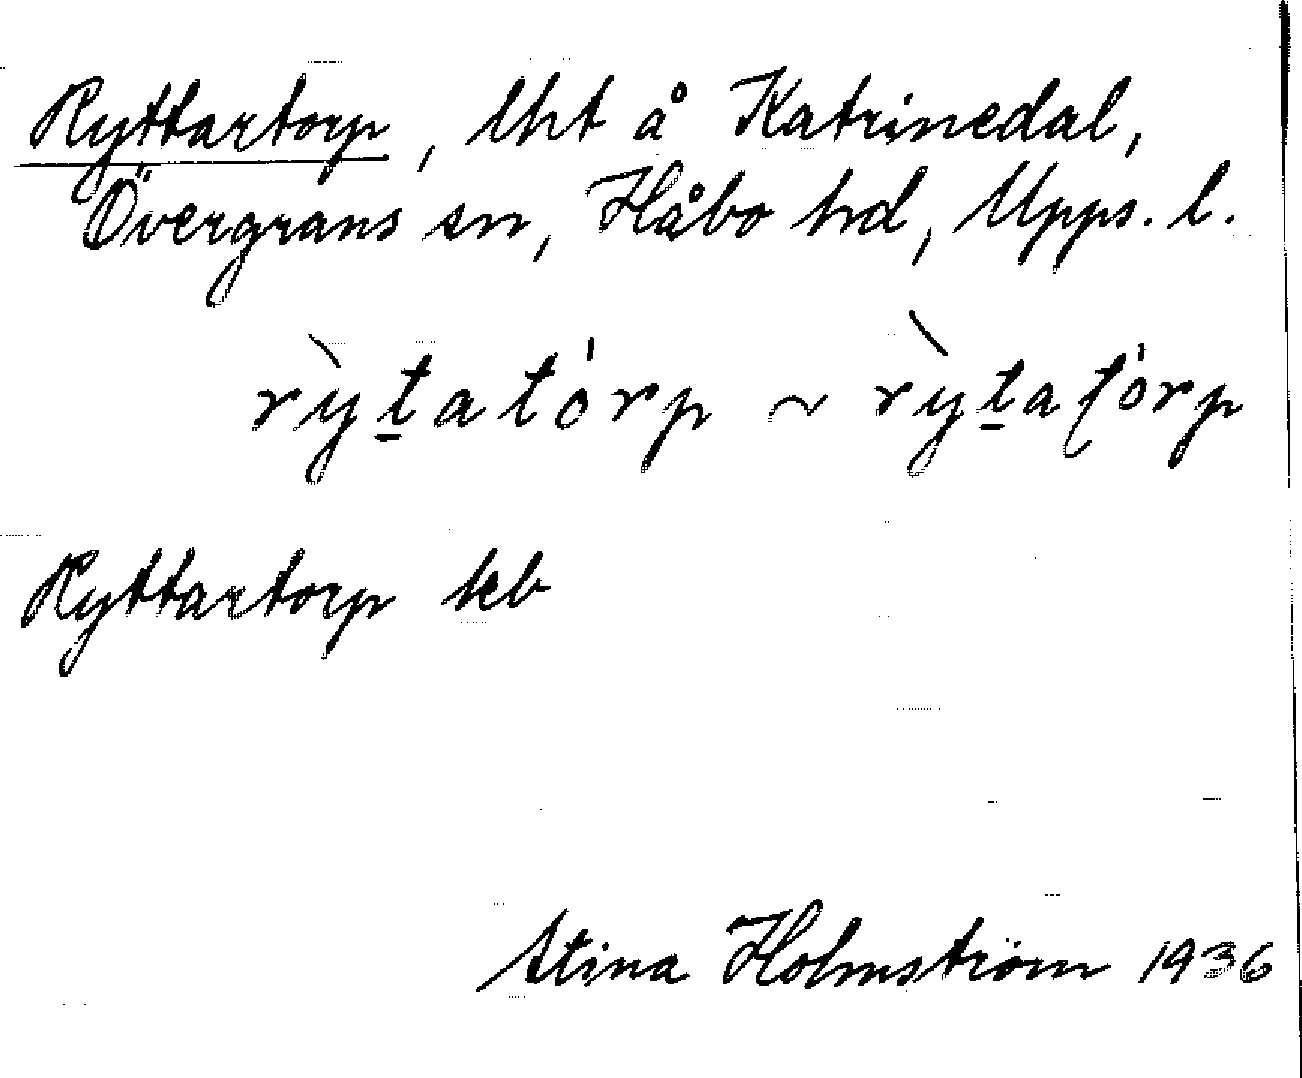 Ryttartorp, lht å Katrinedal,
Övergrans sn, Håbo hd, Upps. l.
rỳt̠atórp ~ rỳt̠aʈórp
Ryttartorp kb
Stina Holmström 1936